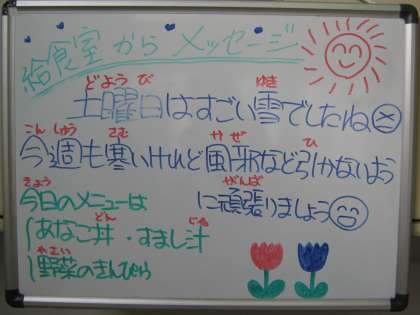 給食室からメッセージ
どようび ゆき
土曜日はすごい雪でしたね
こんしゅう さむ かぜ ひ
今週も寒いけれど風邪など引かないよう
がんば
に頑張りましょう
きょう
今日のメニューは
どん じる
あなご丼・すまし汁
やさい
野菜のきんぴら